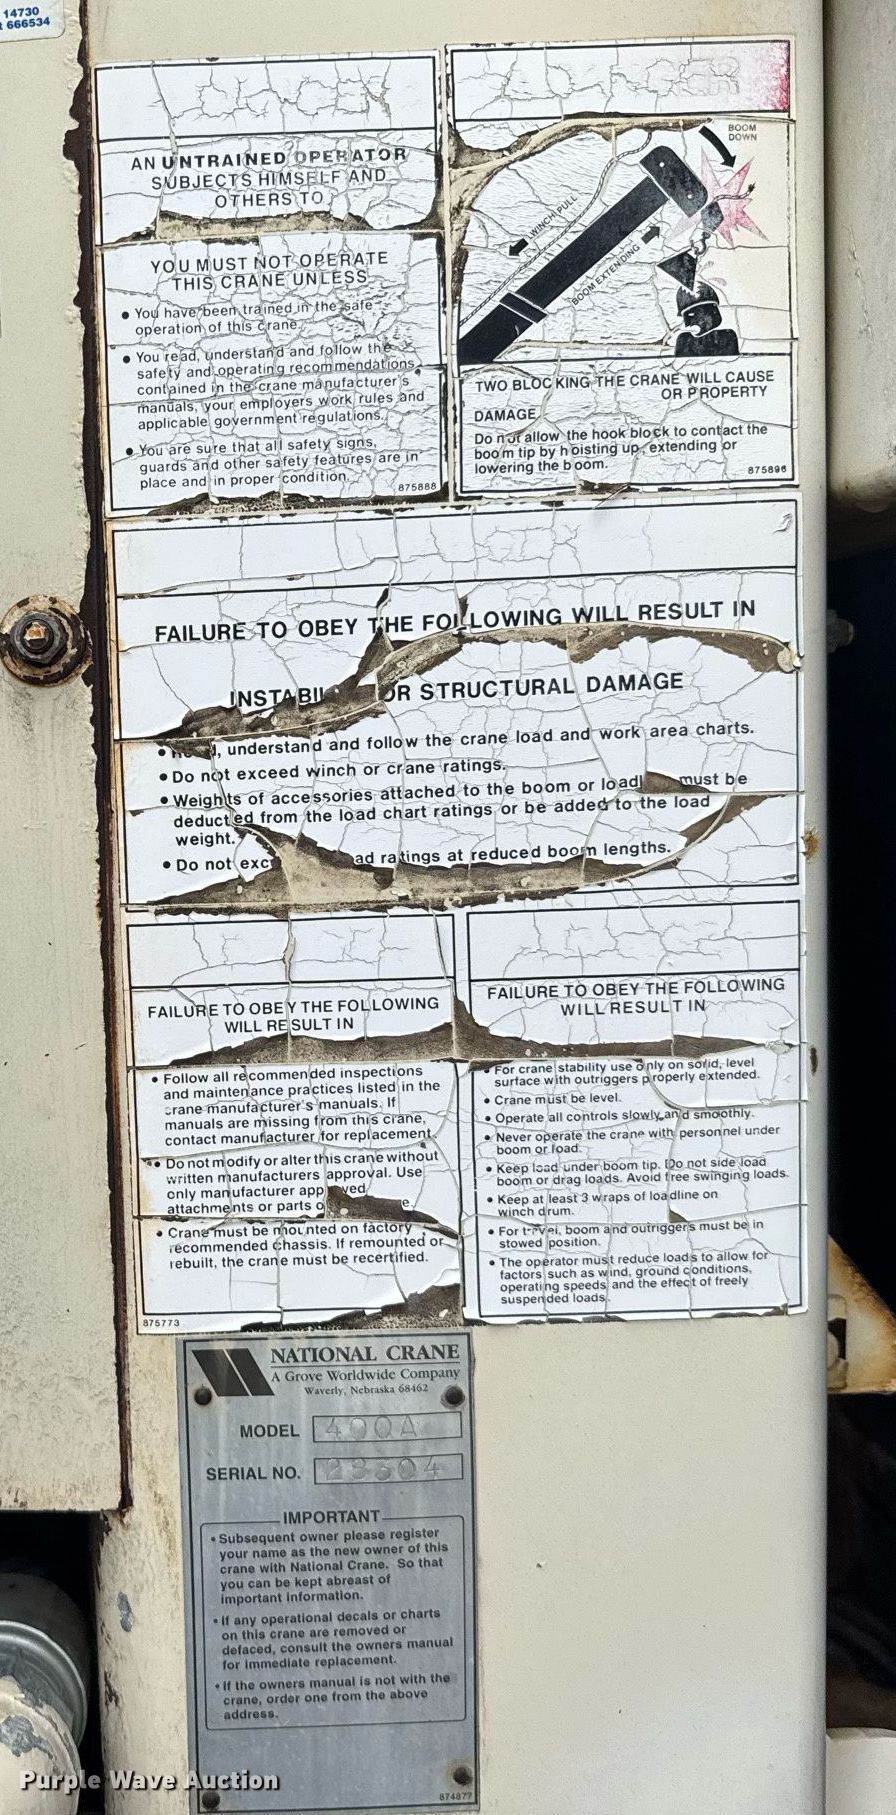 14730
666534
DANGER
AN UNTRAINED OPERATOR
SUBJECTS HIMSELF AND
OTHERS TO
YOU MUST NOT OPERATE
THIS CRANE UNLESS
• You have been trained in the safe
operation of this crane.
• You read, understand and follow the
safety and operating recommendations
contained in the crane manufacturer's
manuals, your employers work rules and
applicable government regulations.
• You are sure that all safety signs,
guards and other safety features are in
place and in proper condition.
875888
DANGER
BOOM
DOWN
WINCH PULL
BOOM EXTENDING
TWO BLOCKING THE CRANE WILL CAUSE
OR PROPERTY
DAMAGE.
Do not allow the hook block to contact the
boom tip by hoisting up, extending or
lowering the boom.
875896
FAILURE TO OBEY THE FOLLOWING WILL RESULT IN
INSTABIL OR STRUCTURAL DAMAGE
• , understand and follow the crane load and work area charts.
• Do not exceed winch or crane ratings.
• Weights of accessories attached to the boom or loadl must be
deducted from the load chart ratings or be added to the load
weight.
• Do not exc ad ratings at reduced boom lengths.
FAILURE TO OBEY THE FOLLOWING
WILL RESULT IN
• Follow all recommended inspections
and maintenance practices listed in the
crane manufacturer's manuals. If
manuals are missing from this crane,
contact manufacturer for replacement.
• Do not modify or alter this crane without
written manufacturers approval. Use
only manufacturer approved
attachments or parts o e.
• Crane must be mounted on factory
recommended chassis. If remounted or
rebuilt, the crane must be recertified.
875773
FAILURE TO OBEY THE FOLLOWING
WILL RESULT IN
• For crane stability use only on solid, level
surface with outriggers properly extended.
• Crane must be level.
• Operate all controls slowly and smoothly.
• Never operate the crane with personnel under
boom or load.
• Keep load under boom tip. Do not side load
boom or drag loads. Avoid free swinging loads.
• Keep at least 3 wraps of loadline on
winch drum.
• For travel, boom and outriggers must be in
stowed position.
• The operator must reduce loads to allow for
factors such as wind, ground conditions,
operating speeds and the effect of freely
suspended loads.
NATIONAL CRANE
A Grove Worldwide Company
Waverly, Nebraska 68462
MODEL 400A
SERIAL NO. 23304
IMPORTANT
• Subsequent owner please register
your name as the new owner of this
crane with National Crane. So that
you can be kept abreast of
important information.
• If any operational decals or charts
on this crane are removed or
defaced, consult the owners manual
for immediate replacement.
• If the owners manual is not with the
crane, order one from the above
address.
874877
Purple Wave Auction